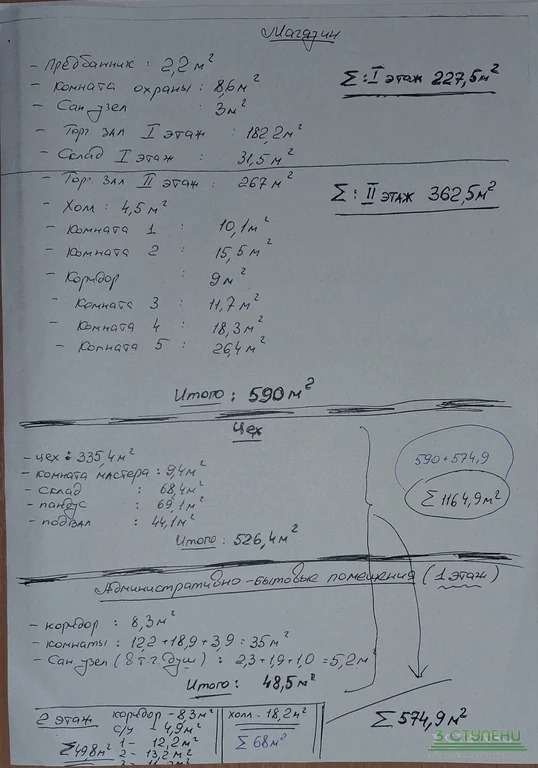 Магазин
- Предбанник : 2,2 м²
- комната охраны : 8,6 м²
- Сан узел : 3 м²
- Торг. зал I этаж : 182,2 м²
- Склад I этаж : 31,5 м²
Σ : I этаж 227,5 м²
- Торг. зал II этаж : 267 м²
- Холл : 4,5 м²
- Комната 1 : 10,1 м²
- Комната 2 : 15,5 м²
- Коридор : 9 м²
- Комната 3 : 11,7 м²
- Комната 4 : 18,3 м²
- Комната 5 : 26,4 м²
Σ : II этаж 362,5 м²
Итого : 590 м²
Цех
- цех : 335,4 м²
- комната мастера : 9,4 м²
- склад : 68,4 м²
- пандус : 69,1 м²
- подвал : 44,1 м²
Итого : 526,4 м²
590 + 574,9
Σ 1164,9 м²
Административно-бытовые помещения (1 этаж)
- коридор : 8,3 м²
- комнаты : 12,2 + 18,9 + 3,9 = 35 м²
- Сан узел (в т.г. душ) : 2,3 + 1,9 + 1,0 = 5,2 м²
Итого : 48,5 м²
Σ 574,9 м²
2 этаж
коридор - 8,3 м²
с/у - 4,9 м²
1 - 12,2 м²
2 - 13,2 м²
Σ 49,8 м²
холл - 18,2 м²
Σ 68 м²
3 СТУПЕНИ